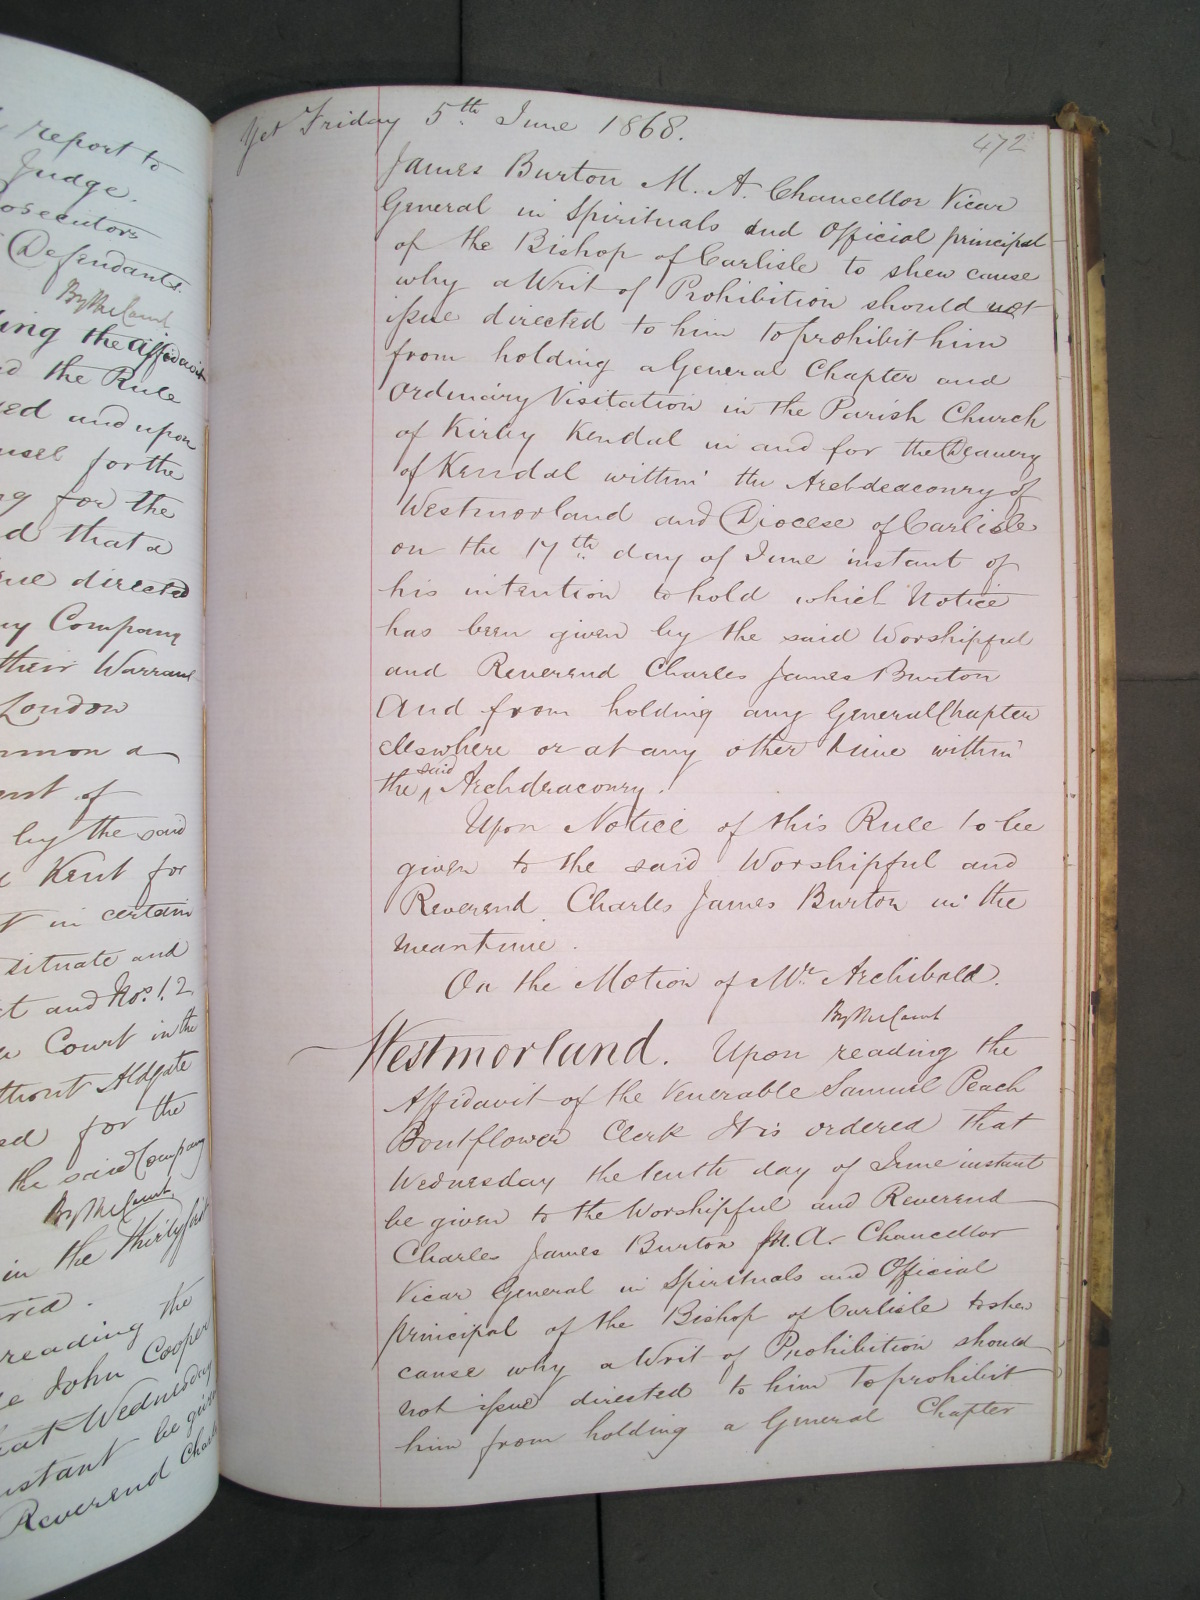 report to
Judge.
osecutors
Defendants.
By the Court
ling the affidavit
d the Rule
ed and upon
nsel for the
g for the
d that a
ue directed
ny Company
their Warrant
London
mmon a
by the said
Kent for
in certain
situate and
t and Nos. 1. 2
Court in the
thout Aldgate
ed for the
the said Company
By the Court
in the Thirtyfirst
reading the
John Cooper
hat Wednesday
nstant be given
Reverend Charles
Yet Friday 5th June 1868.
472
James Burton M. A. Chancellor Vicar
General in Spirituals and Official principal
of the Bishop of Carlisle to shew cause
why a Writ of Prohibition should not
issue directed to him to prohibit him
from holding a General Chapter and
Ordinary Visitation in the Parish Church
of Kirby Kendal in and for the Deanery
of Kendal within the Archdeaconry of
Westmorland and Diocese of Carlisle
on the 17th day of June instant of
his intention to hold which Notice
has been given by the said Worshipful
and Reverend Charles James Burton
And from holding any General Chapter
elswhere or at any other time within
the said Archdeaconry.
Upon Notice of this Rule to be
given to the said Worshipful and
Reverend Charles James Burton in the
meantime.
On the Motion of Mr. Archibald.
By the Court
Westmorland. Upon reading the
Affidavit of the Venerable Samuel Peach
Boutflower Clerk It is ordered that
Wednesday the tenth day of June instant
be given to the Worshipful and Reverend
Charles James Burton M. A. Chancellor
Vicar General in Spirituals and Official
principal of the Bishop of Carlisle to shew
cause why a Writ of Prohibition should
not issue directed to him to prohibit
him from holding a General Chapter